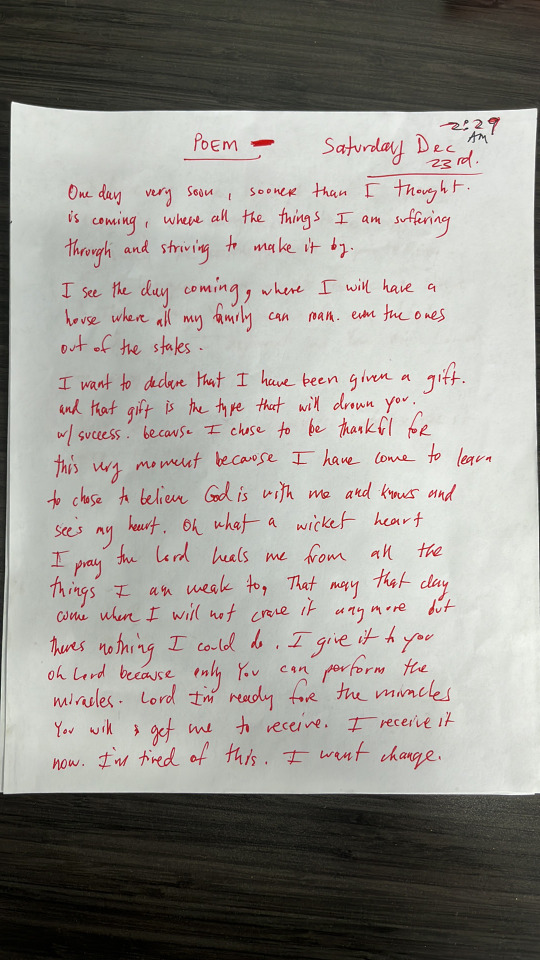 2:29
AM
POEM - Saturday Dec
23rd.
One day very soon, sooner than I thought.
is coming, where all the things I am suffering
through and striving to make it by.
I see the day coming, where I will have a
house where all my family can roam. even the ones
out of the states.
I want to declare that I have been given a gift.
and that gift is the type that will drown you.
w/ success. because I chose to be thankful for
this very moment because I have come to learn
to chose to believe God is with me and knows and
see's my heart. Oh what a wicket heart
I pray the Lord heals me from all the
things I am weak to, That may that day
come where I will not crave it anymore but
theres nothing I could do. I give it to you
oh Lord because only You can perform the
miracles. Lord I'm ready for the miracles
You will get me to receive. I receive it
now. I'm tired of this. I want change.